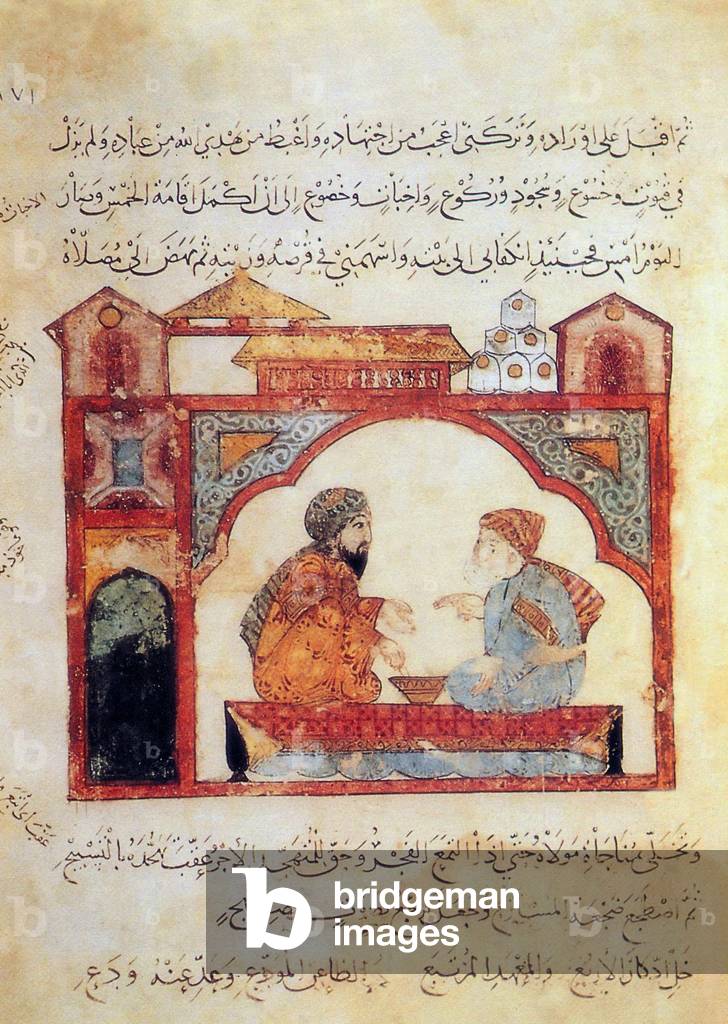 ثُمَّ اَقْبَلَ عَلى اَوْرَادِهِ وَتَرَكَنِي اَعْجَبُ مِن اجْتِهَادِهِ وَاَغْبِطُ مَن يَهْدِي اللهُ مِنْ عِبَادِهِ وَلَم يَزَلْ
في قُنُوتٍ وَخُشُوعٍ وَسُجُودٍ وَرُكُوعٍ وَاِخْبَاتٍ وَخُضُوعٍ اِلَى اَنْ اَكْمَلَ اِقَامَةَ الخَمْسِ وَصَارَ
اليَوْمُ اَمْسِ فَحِينَئِذٍ انكَفَا بي الى بَيْتِهِ وَاَسْهَمَنِي في قُرْصِهِ وَزَيْتِهِ ثُم نَهَضَ اِلَى مُصَلَّاهُ
وَتَخَلَّى بِمُنَاجَاةِ مَوْلَاهُ حَتَّى اِذَا التَمَعَ الفَجْرُ وَحَقَّ لِلْمُتَهَجِّدِ الاَجْرُ عَقَّبَ تَهَجُّدَهُ بِالتَّسْبِيحِ
ثُمَّ اضْطَجَعَ ضَجْعَةَ المُسْتَرِيحِ وَجَعَلَ
خَلِّ ادِّكَارَ الاَرْبُعِ وَالمَعْهَدِ المُرْتَبَعِ وَالظَّاعِنِ المُوَدِّعِ وَعَدِّ عَنْهُ وَدَعِ
bridgeman
images